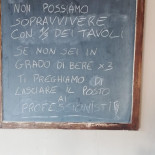 NON POSSIAMO
SOPRAVVIVERE
CON ⅓ DEI TAVOLI
SE NON SEI IN
GRADO DI BERE x3
TI PREGHIAMO DI
LASCIARE IL POSTO
AI
PROFESSIONISTI